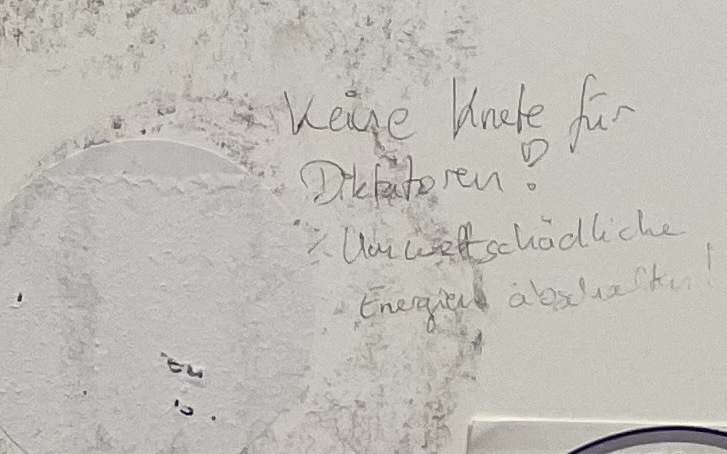 Keine Knete für
Diktatoren!
Umweltschädliche
Energien abschalten!